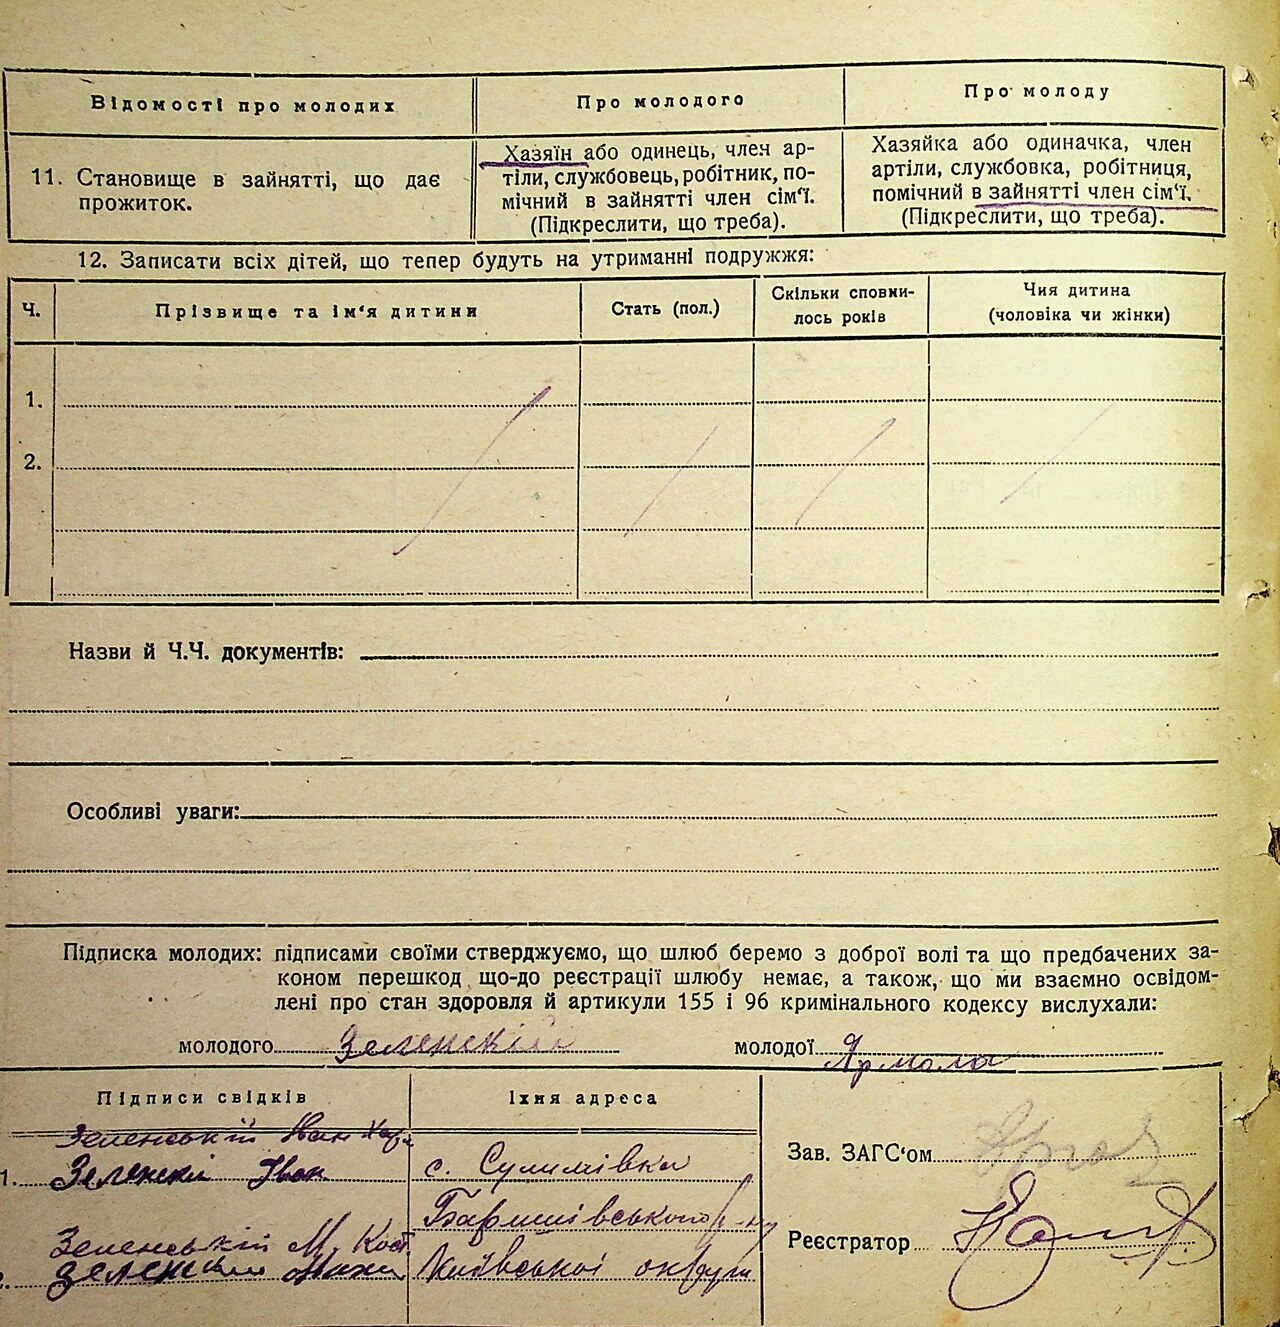 Відомості про молодих
Про молодого
Про молоду
11. Становище в зайнятті, що дає
прожиток.
Хазяїн або одинець, член ар-
тіли, службовець, робітник, по-
мічний в зайнятті член сім'ї.
(Підкреслити, що треба).
Хазяйка або одиначка, член
артіли, службовка, робітниця,
помічний в зайнятті член сім'ї.
(Підкреслити, що треба).
12. Записати всіх дітей, що тепер будуть на утриманні подружжя:
Ч.
Прізвище та ім'я дитини
Стать (пол.)
Скільки сповни-
лось років
Чия дитина
(чоловіка чи жінки)
1.
2.
Назви й Ч.Ч. документів:
Особливі уваги:
Підписка молодих: підписами своїми стверджуємо, що шлюб беремо з доброї волі та що предбачених за-
коном перешкод що-до реєстрації шлюбу немає, а також, що ми взаємно освідом-
лені про стан здоровля й артикули 155 і 96 кримінального кодексу вислухали:
молодого Зеленскій молодої Ярмола
Підписи свідків
Їхня адреса
Зеленській Іван
1. Зеленскй Іван
Зеленській М. Кост.
Зеленский
с. Сулимівка
Баришівського р-ну
Київської округи
Зав. ЗАГС'ом
Реєстратор